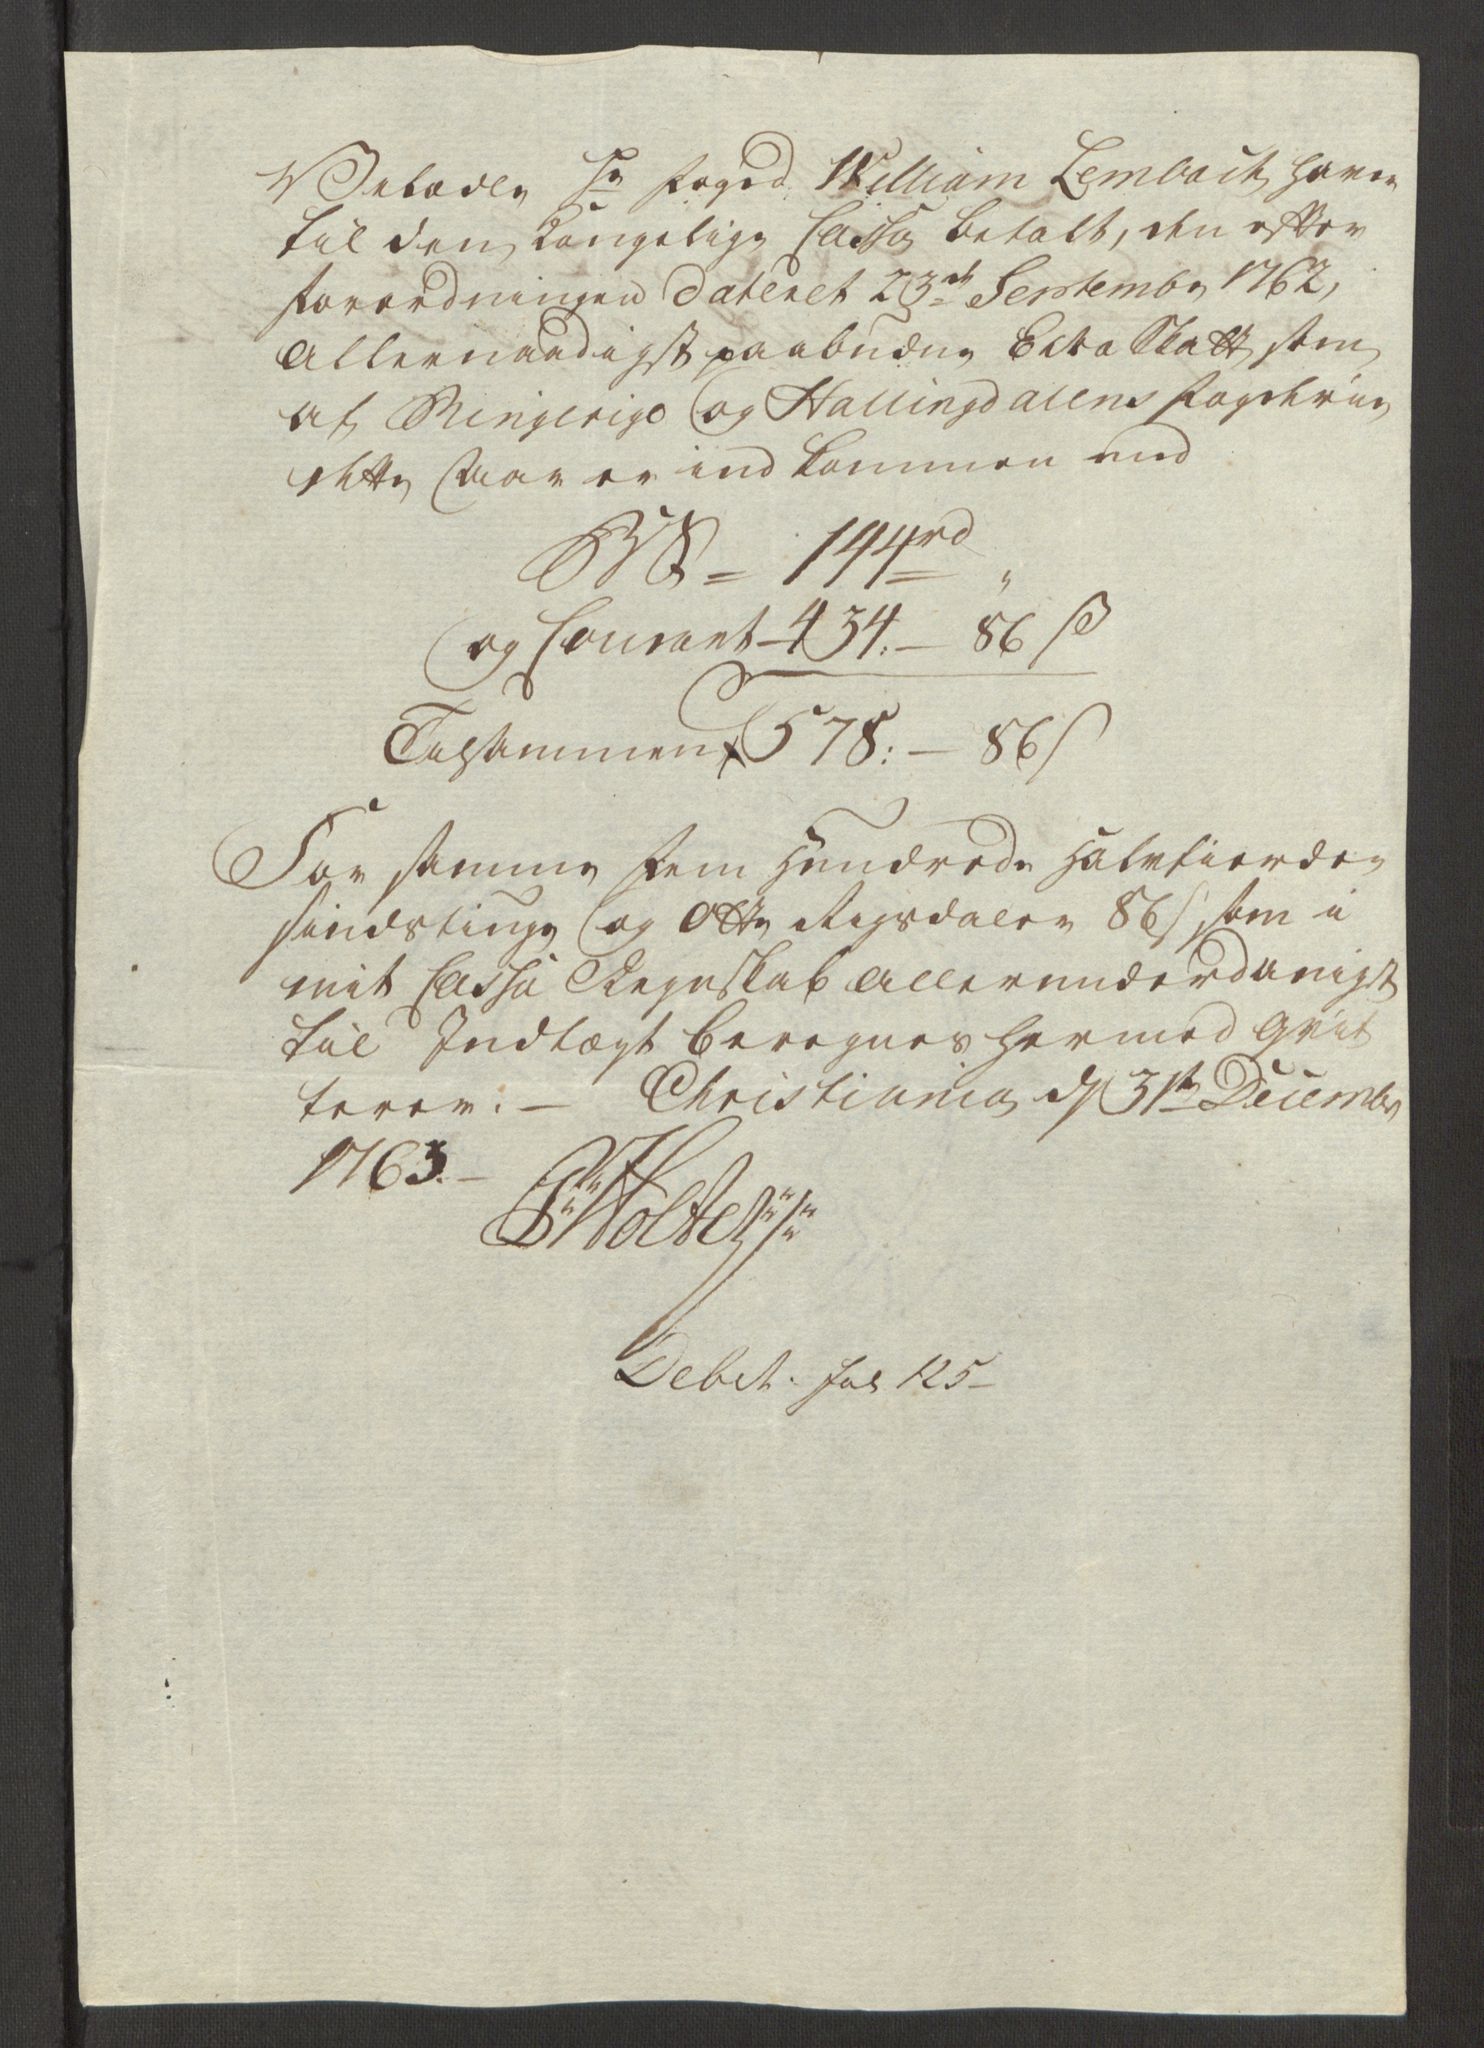 Velædle Hr Foged William Lembach haver
til den Kongelige Cassa betalt, den efter
Forordningen dateret 23de Septembr 1762,
Allernaadigst paabudne Extra Skatt, som
af Ringerige og Hallingdalens Fogderie
dette Aar er ind kommen med
= 144 rd "
og Courant - 434: - 86 ß
Tilsammen 578: - 86 ß
For samme Fem Hundrede Halvfierde
sindstiuge og Otte Rigsdaler 86 ß som i
mit Cassa Regnskab allerunderdanigst
til Indtægt beregnes hermed qvit
terer. - Christiania d 31te Decembr
1763. -
PHolter
Debet. fol 125 -